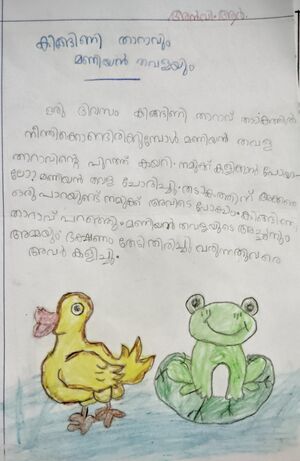 അൻവി. ആർ.
കിങ്ങിണി താറാവും
മണിയൻ തവളയും
ഒരു ദിവസം കിങ്ങിണി താറാവ് തടാകത്തിൽ
നീന്തിക്കൊണ്ടിരിക്കുമ്പോൾ മണിയൻ തവള
താറാവിന്റെ പുറത്ത് കയറി. നമുക്ക് കളിക്കാൻ പോയാ
ലോ? മണിയൻ തവള ചോദിച്ചു. തടാകത്തിന് അക്കരെ
ഒരു പാറയുണ്ട് നമുക്ക് അവിടെ പോകാം. കിങ്ങിണി
താറാവ് പറഞ്ഞു. മണിയൻ തവളയുടെ അച്ഛനും
അമ്മയും ഭക്ഷണം തേടി തിരിച്ചു വരുന്നതുവരെ
അവർ കളിച്ചു.